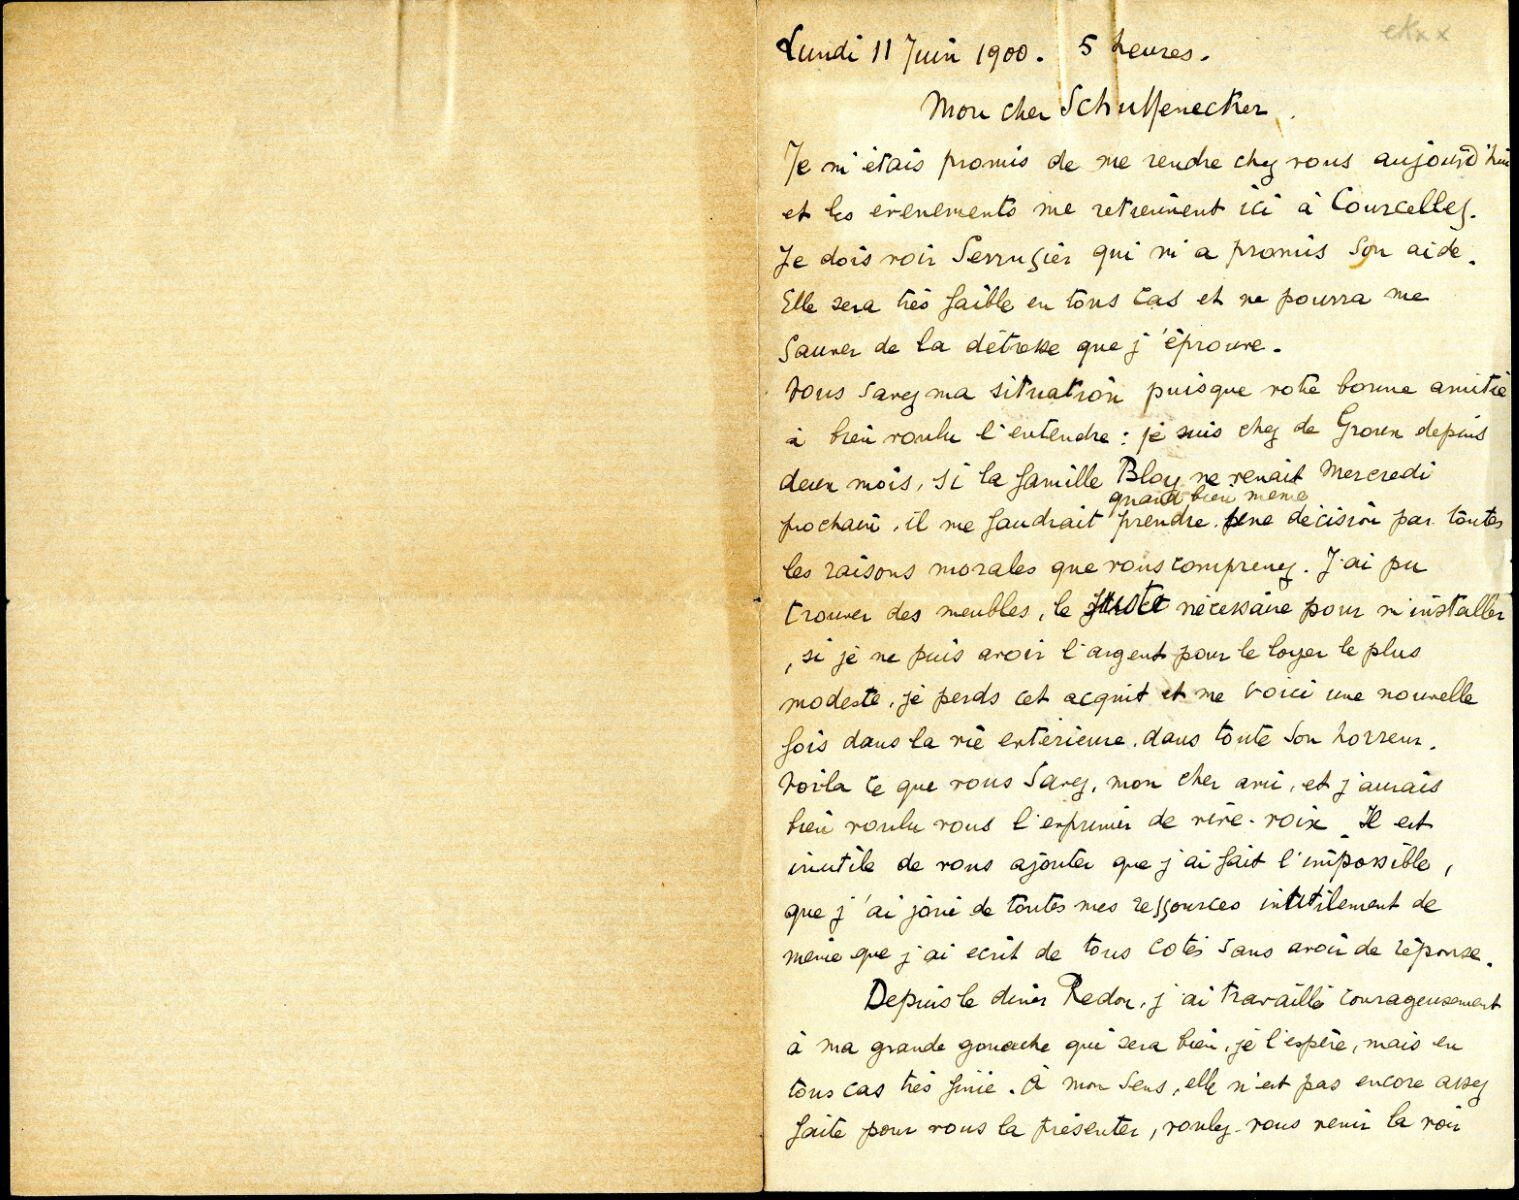 Lundi 11 Juin 1900. 5 heures.
Mon cher Schuffenecker.
Je m'étais promis de me rendre chez vous aujourd'hui
et les évènements me retiennent ici à Courcelles.
Je dois voir Serrusier qui m'a promis son aide.
Elle sera très faible en tous cas et ne pourra me
sauver de la détresse que j'éprouve.
Vous savez ma situation puisque votre bonne amitié
a bien voulu l'entendre : je suis chez de Groux depuis
deux mois, si la famille Bloy ne venait Mercredi
quand bien même
prochain, il me faudrait prendre une décision par toutes
les raisons morales que vous comprenez. J'ai pu
trouver des meubles, le juste nécessaire pour m'installer
, si je ne puis avoir l'argent pour le loyer le plus
modeste, je perds cet acquit et me voici une nouvelle
fois dans la vie extérieure, dans toute son horreur.
Voilà ce que vous savez, mon cher ami, et j'aurais
bien voulu vous l'exprimer de vive-voix. Il est
inutile de vous ajouter que j'ai fait l'impossible,
que j'ai joué de toutes mes ressources inutilement de
même que j'ai ecrit de tous cotés sans avoir de réponse.
Depuis le diner Redon, j'ai travaillé courageusement
à ma grande gouache qui sera bien, je l'espère, mais en
tous cas très finie. À mon sens, elle n'est pas encore assez
faite pour vous la présenter, voulez-vous venir la voir